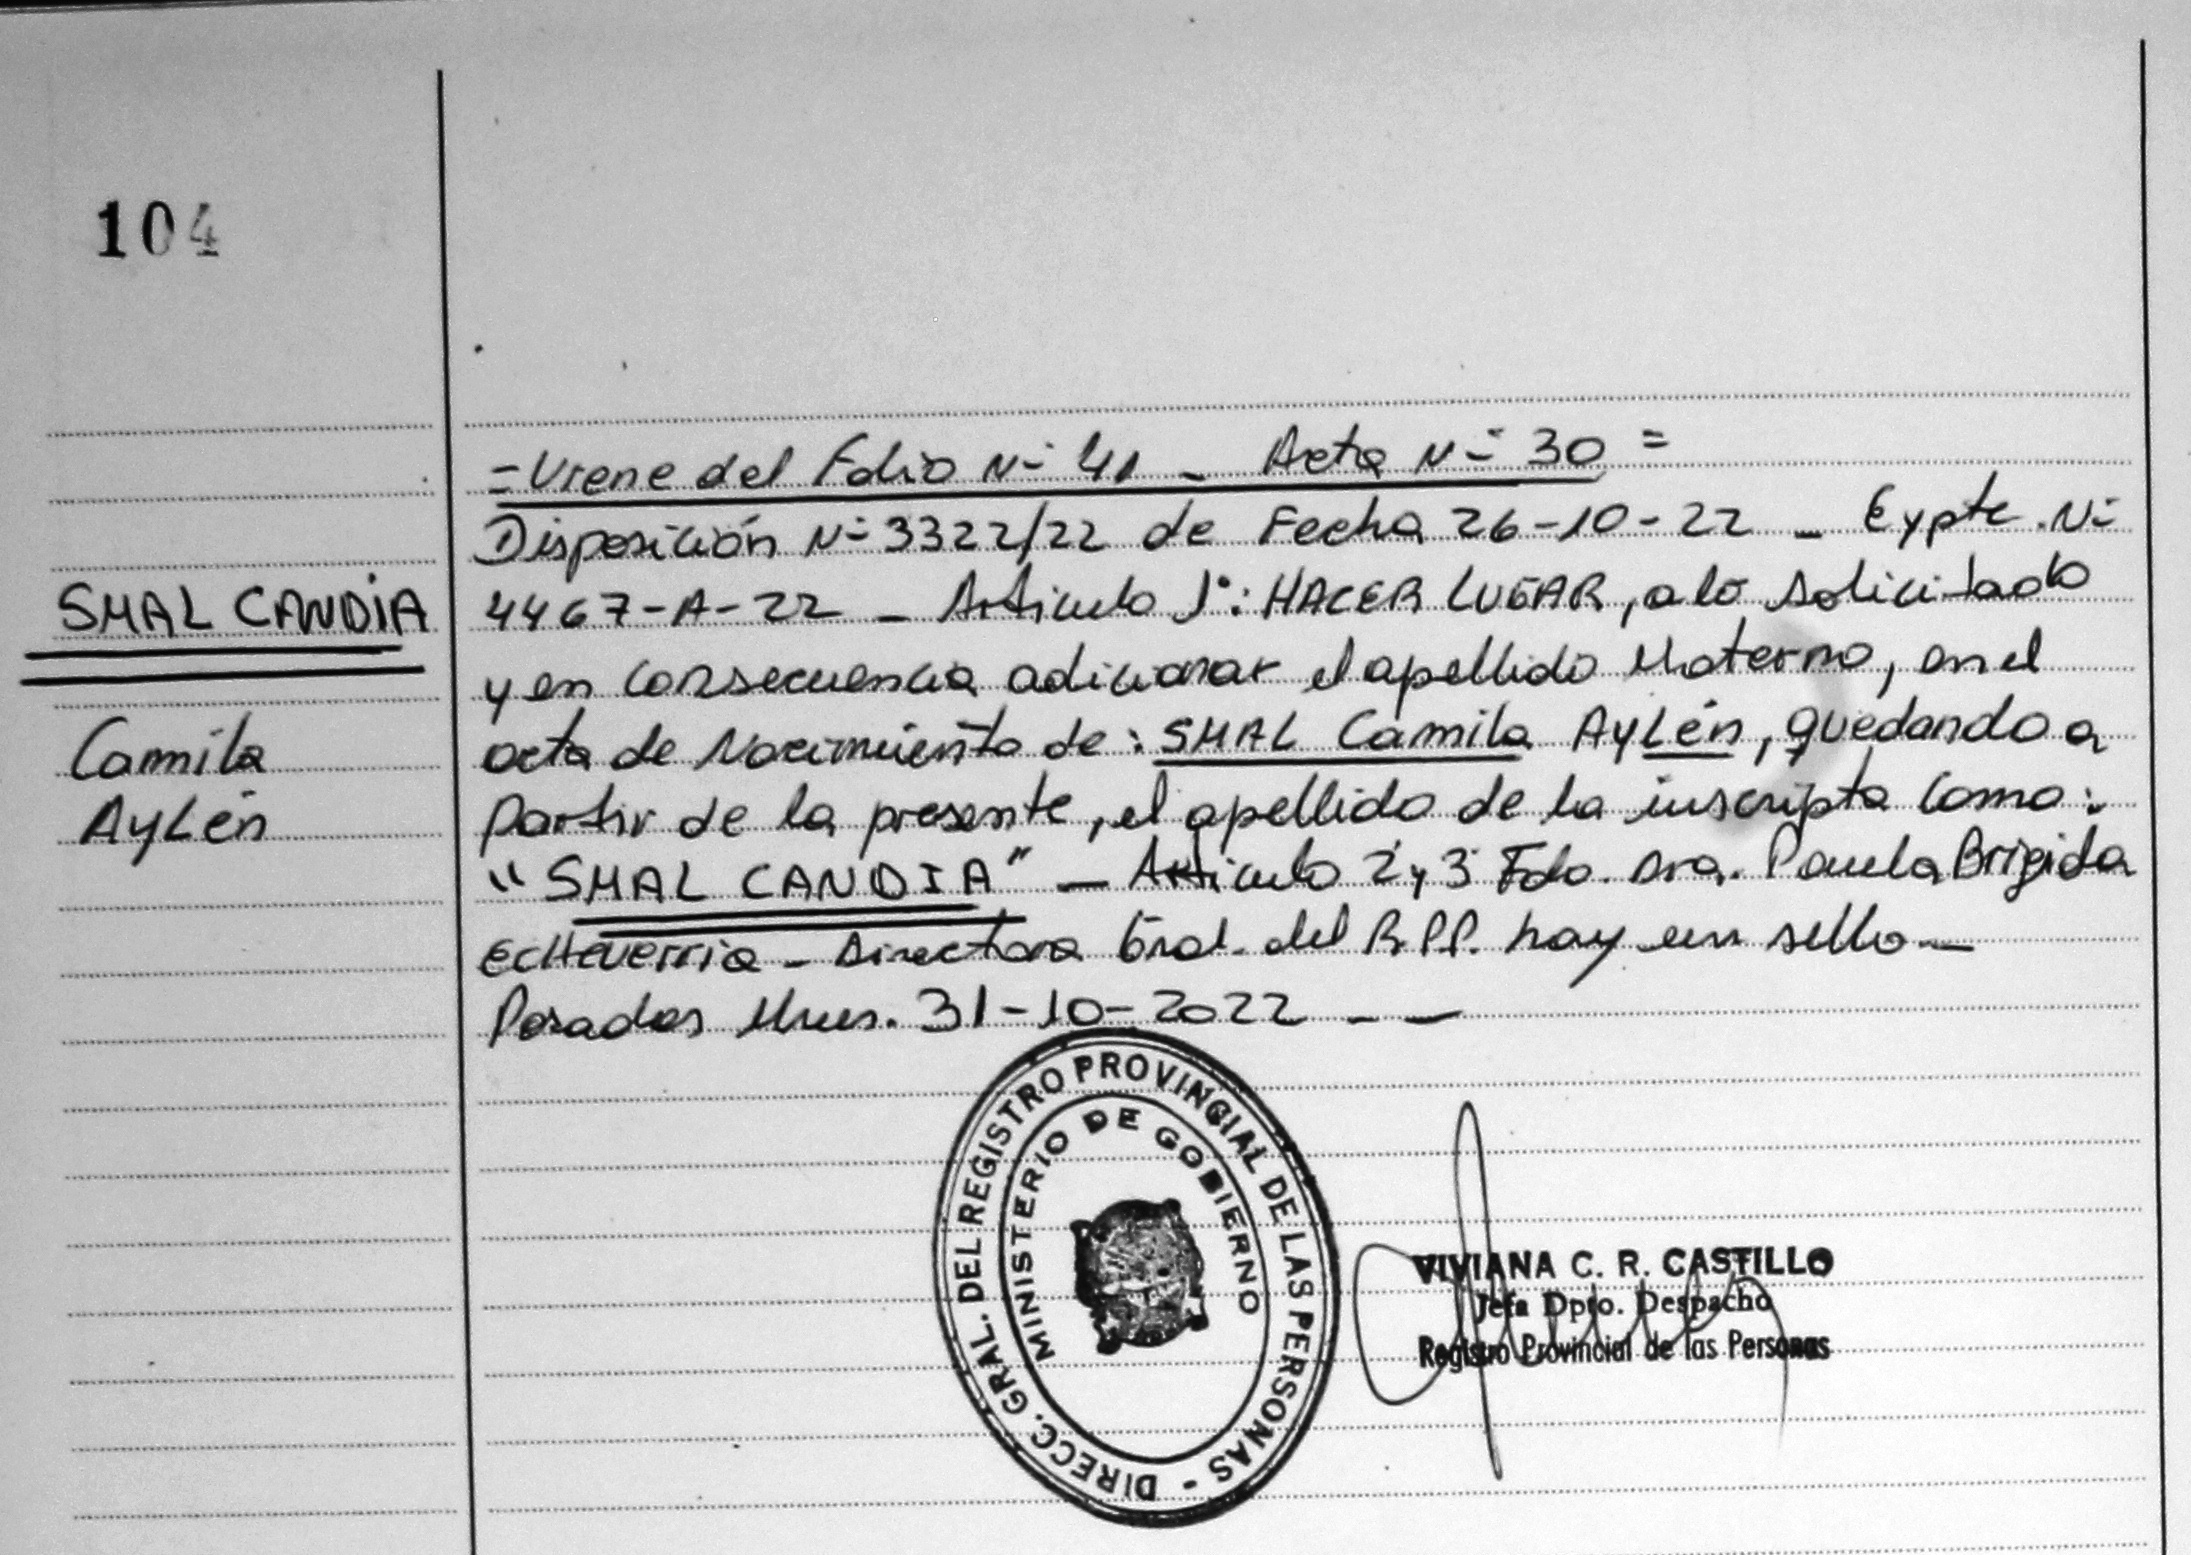 104
SMAL CANDIA
Camila
Aylén
= Viene del Folio Nº 41 - Acta Nº 30 =
Disposición Nº 3322/22 de Fecha 26-10-22 - Expte. Nº
4467-A-22 - Artículo 1º: HACER LUGAR, a lo solicitado
y en consecuencia adicionar el apellido Materno, en el
acta de Nacimiento de: SMAL Camila Aylén, quedando a
partir de la presente, el apellido de la inscripta como:
"SMAL CANDIA" - Artículo 2 y 3 Fdo. Dra. Paula Brigida
Echeverria - Directora Gral. del R.P.P. hay un sello -
Posadas Mnes. 31-10-2022 - -
DIRECC. GRAL. DEL REGISTRO PROVINCIAL DE LAS PERSONAS -
MINISTERIO DE GOBIERNO
VIVIANA C. R. CASTILLO
Jefa Dpto. Despacho
Registro Provincial de las Personas